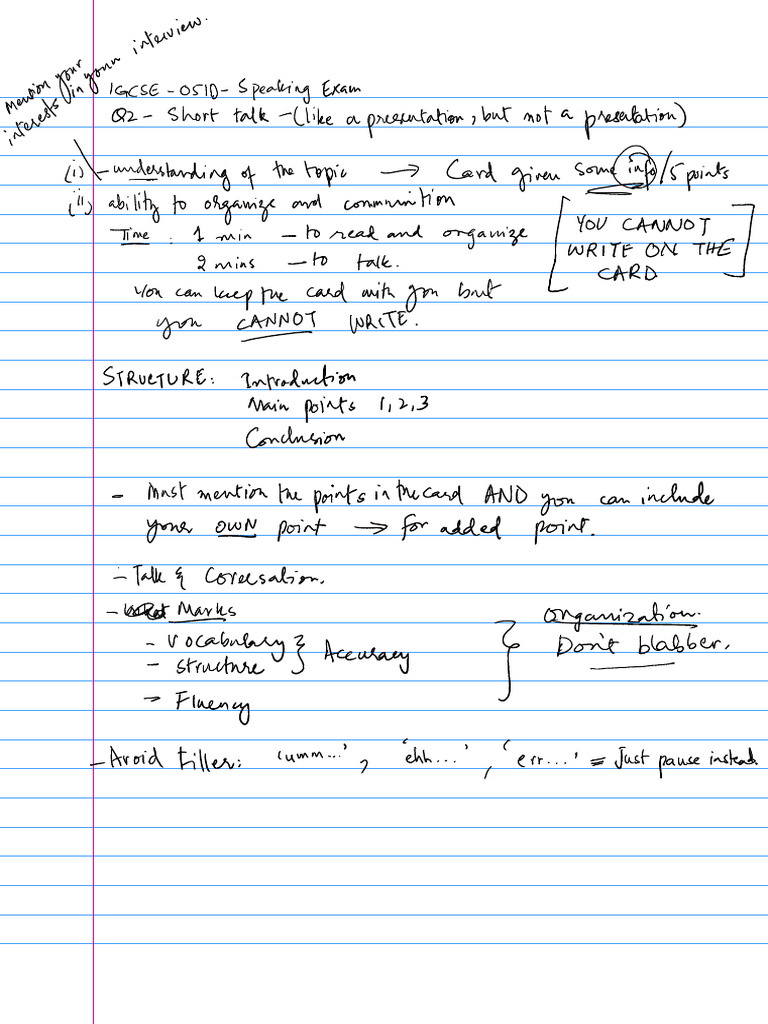 Mention your
interests in your interview.
IGCSE - 0510 - Speaking Exam
Q2 - Short talk - (like a presentation, but not a presetation)
(i) - understanding of the topic → Card given some info / 5 points
(ii) ability to organize and communition
Time : 1 min - to read and organize
2 mins - to talk.
You can keep the card with you but
you CANNOT WRITE.
[YOU CANNOT
WRITE ON THE
CARD]
STRUCTURE: Introduction
Main points 1, 2, 3
Conclusion
- Must mention the points in the card AND you can include
your OWN point → for added point.
- Talk & Coversation.
- Marks
- Vocabulary
- structure } Accuracy
→ Fluency
} organization.
Don't blabber.
- Avoid filler: 'umm...', 'ehh...', 'err...' = Just pause instead.